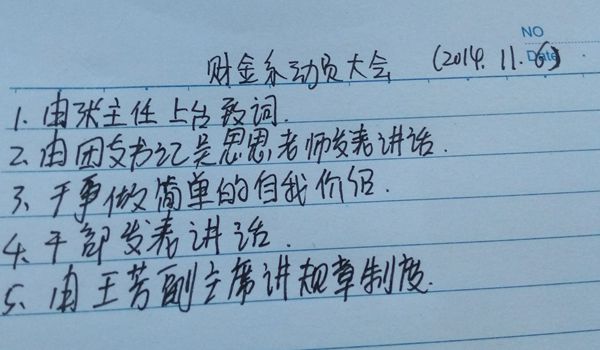 NO
Date
财金系动员大会 (2014.11.6)
1. 由张主任上台致词.
2. 由团支书记吴思思老师发表讲话.
3、干事做简单的自我介绍.
4、干部发表讲话.
5、由王芳副主席讲规章制度.